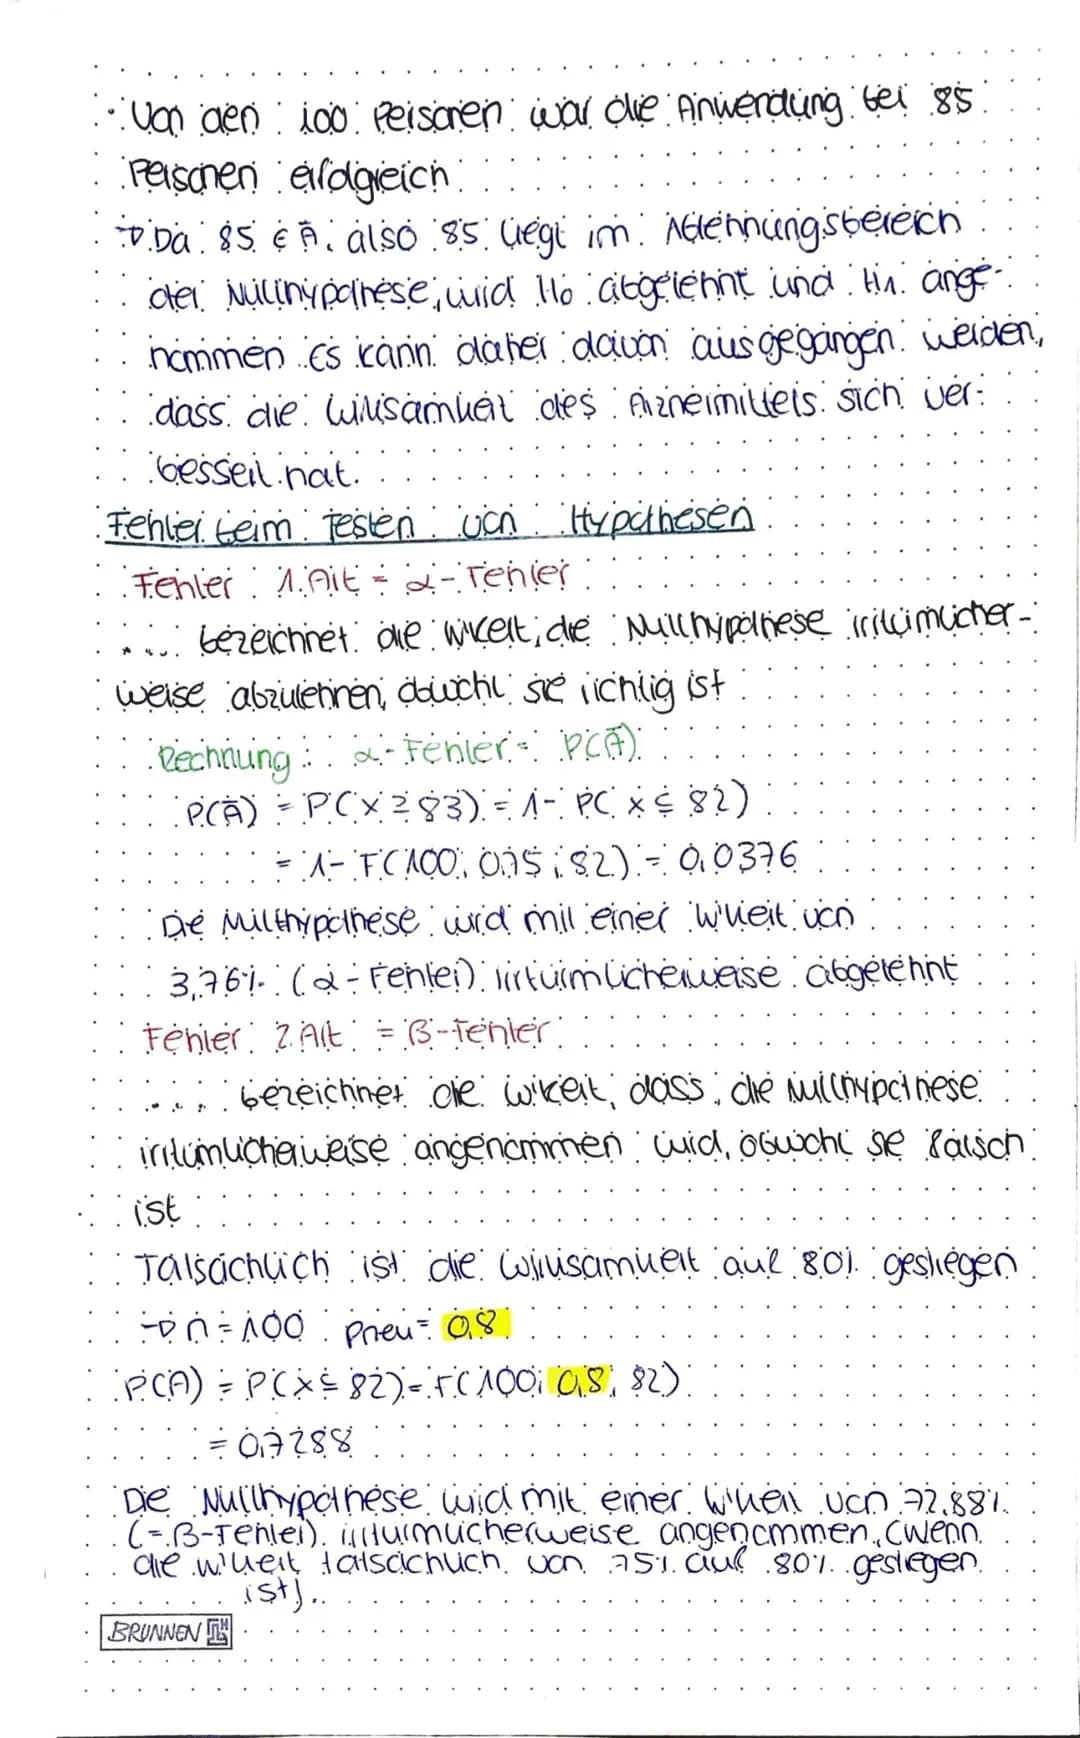 · Von den 100 Personen war die Anwendung bei 85
Personen erfolgreich
→ Da 85 ∈ Ā, also 85 liegt im Ablehnungsbereich
der Nullhypothese, wird H0 abgelehnt und H1 ange-
nommen. Es kann daher davon ausgegangen werden,
dass die Wirksamkeit des Arzneimittels sich ver-
bessert hat.
Fehler beim Testen von Hypothesen
Fehler 1. Art = α-Fehler
.... bezeichnet die W'keit, die Nullhypothese irrtümlicher-
weise abzulehnen, obwohl sie richtig ist
Rechnung: α-Fehler = P(Ā)
P(Ā) = P(X ≥ 83) = 1 - P(X ≤ 82)
= 1 - F(100; 0,75; 82) = 0,0376
Die Nullhypothese wird mit einer W'keit von
3,76% (α-Fehler) irrtürmlicherweise abgelehnt
Fehler 2. Art = β-Fehler
.... bezeichnet die W'keit, dass die Nullhypothese
irrtümlicherweise angenommen wird, obwohl sie falsch
ist
Tatsächlich ist die Wirksamkeit auf 80% gestiegen
→ n = 100 pneu = 0,8
P(A) = P(X ≤ 82) = F(100; 0,8; 82)
= 0,7288
Die Nullhypothese wird mit einer W'keit von 72,88%
(= β-Fehler) irrtürmlicherweise angenommen, (wenn
die W'keit tatsächlich von 75% auf 80% gestiegen
ist).
BRUNNEN